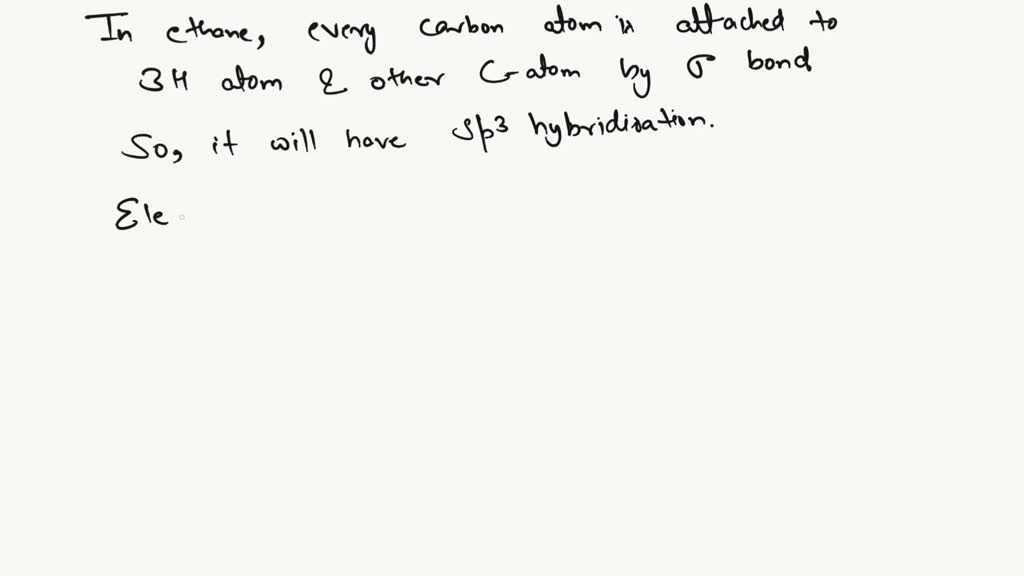 In ethane, every carbon atom is attached to
3H atom & other C-atom by σ bond
So, it will have sp3 hybridisation.
Ele